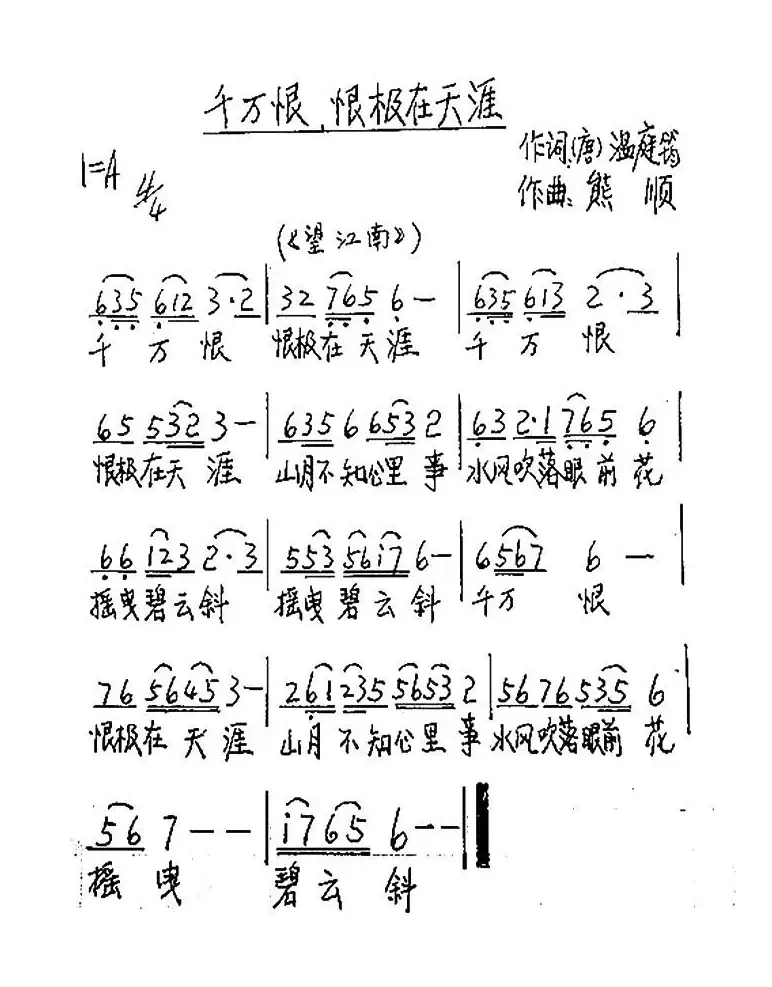 千万恨,恨极在天涯
作词:(唐)温庭筠
1=A 4/4
作曲:熊 顺
(《望江南》)
635 612 3·2 | 32 765 6— | 635 613 2·3 |
千 万 恨 恨极在 天涯 千 万 恨
65 532 3— | 635 6 653 2 | 632·1 765 6 |
恨极在天 涯 山月不知心里 事 水风吹落眼 前 花
66 123 2·3 | 553 5617 6— | 6567 6 — |
摇曳碧云斜 摇曳 碧 云 斜 千万 恨
76 5645 3— | 261 235 5653 2 | 56 76 535 6 |
恨极在 天 涯 山月 不 知心里 事 水风吹落眼前 花
56 7 — — | i765 6 — — ||
摇 曳 碧云 斜